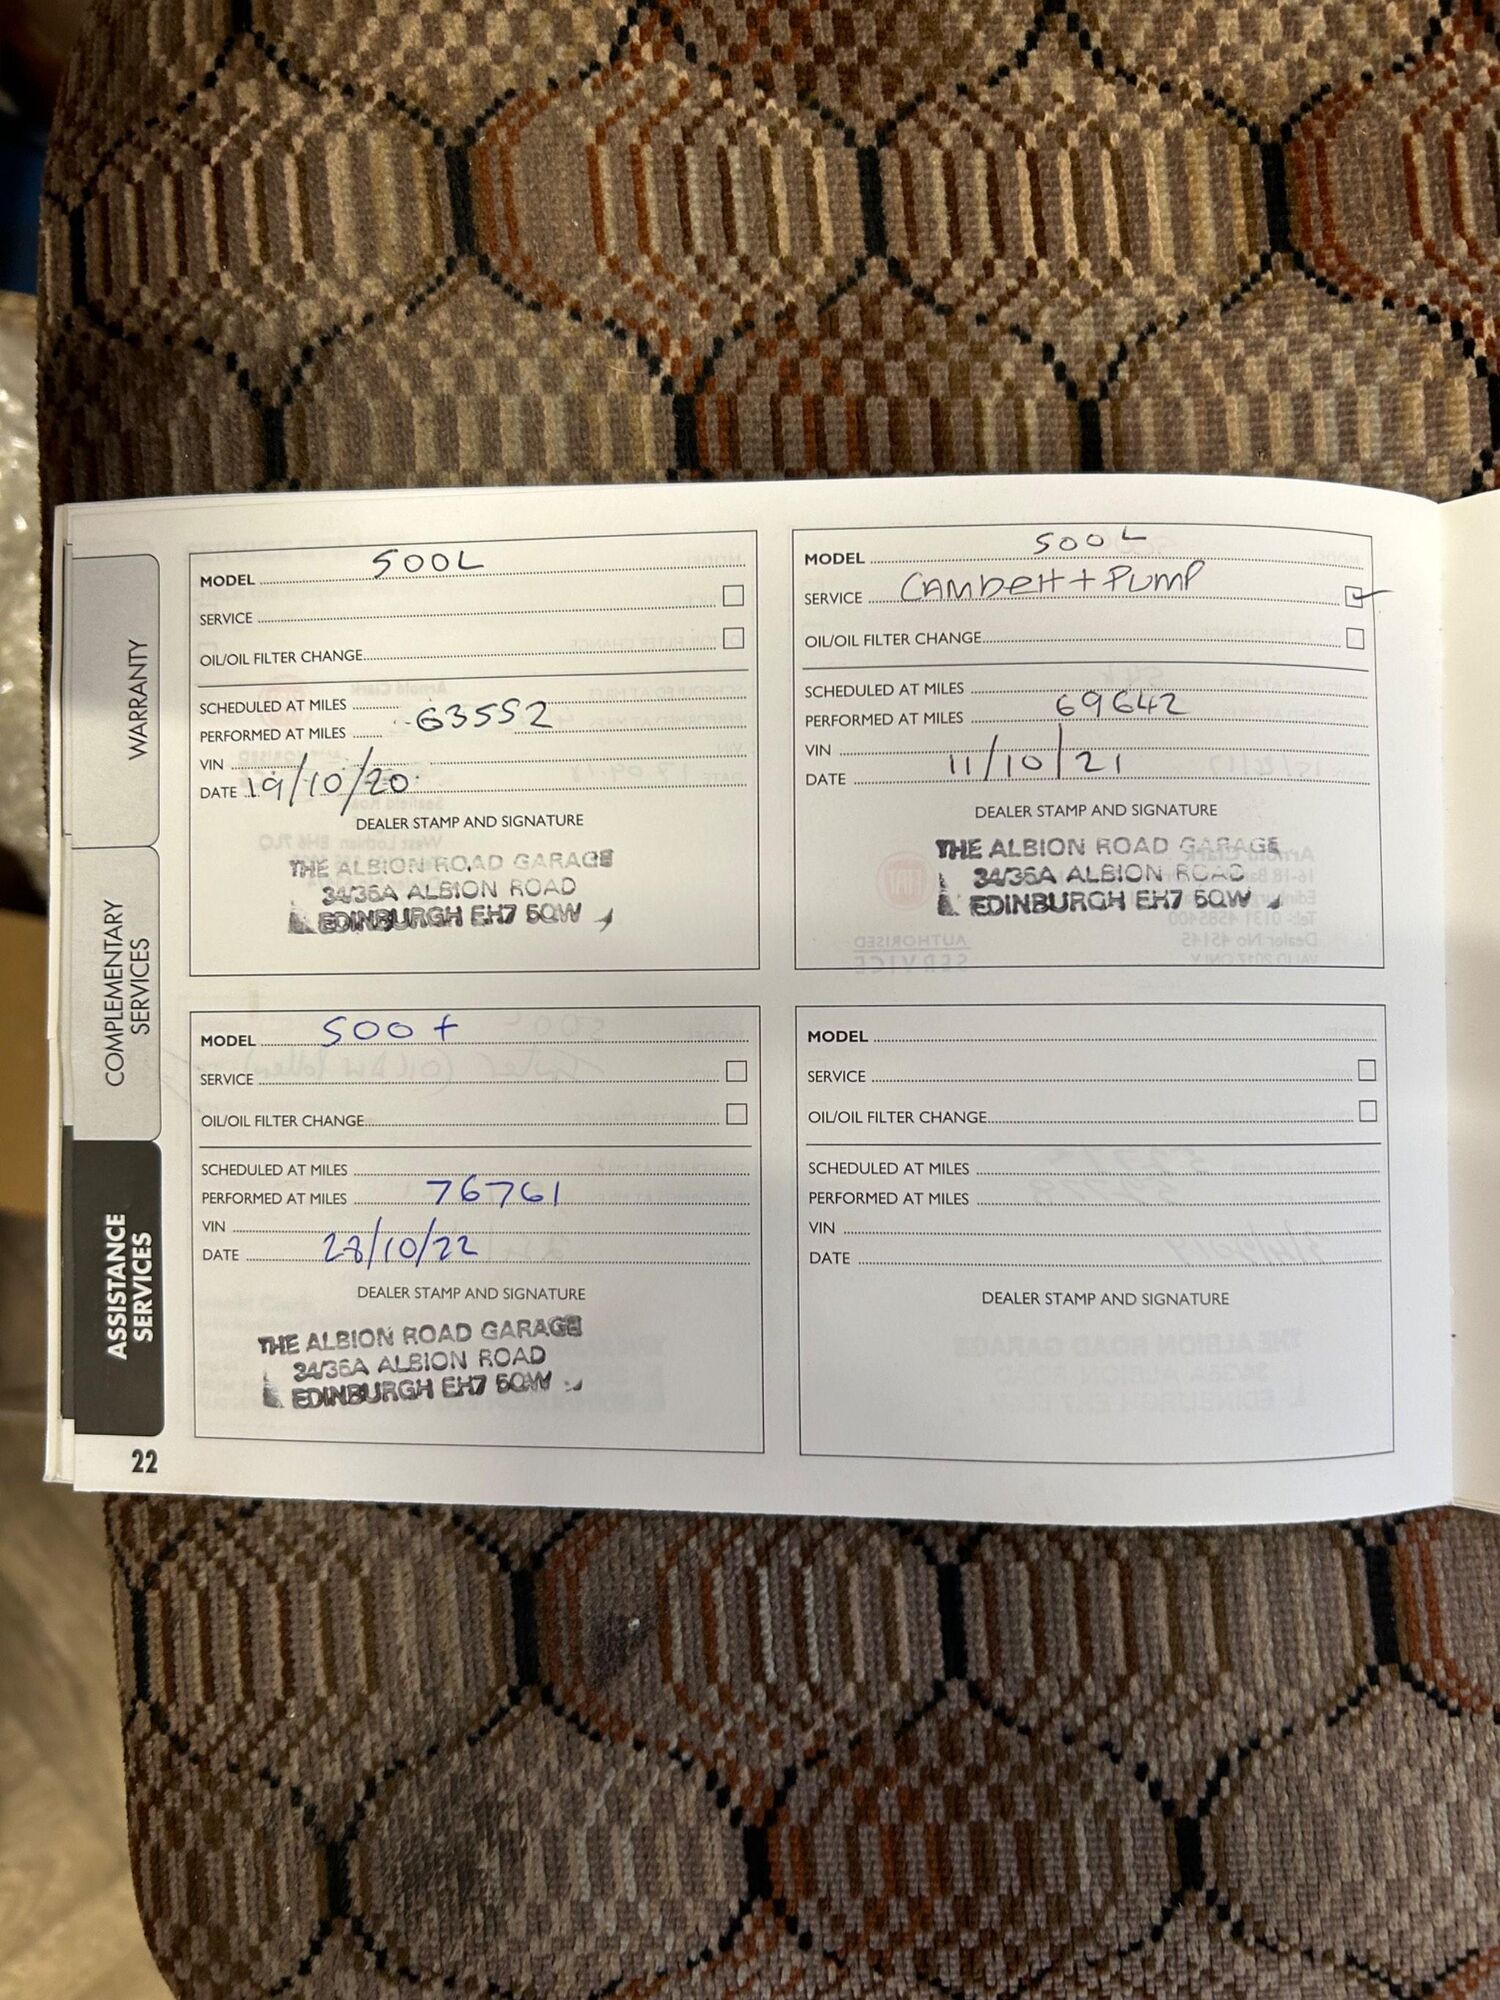 WARRANTY
COMPLEMENTARY
SERVICES
ASSISTANCE
SERVICES
22
MODEL 500L
SERVICE
OIL/OIL FILTER CHANGE
SCHEDULED AT MILES
PERFORMED AT MILES 63552
VIN
DATE 19/10/20
DEALER STAMP AND SIGNATURE
THE ALBION ROAD GARAGE
34/36A ALBION ROAD
EDINBURGH EH7 5QW
MODEL 500L
SERVICE Cambelt + Pump
OIL/OIL FILTER CHANGE
SCHEDULED AT MILES
PERFORMED AT MILES 69642
VIN
DATE 11/10/21
DEALER STAMP AND SIGNATURE
THE ALBION ROAD GARAGE
34/36A ALBION ROAD
EDINBURGH EH7 5QW
MODEL 500
SERVICE
OIL/OIL FILTER CHANGE
SCHEDULED AT MILES
PERFORMED AT MILES 76761
VIN
DATE 28/10/22
DEALER STAMP AND SIGNATURE
THE ALBION ROAD GARAGE
34/36A ALBION ROAD
EDINBURGH EH7 5QW
MODEL
SERVICE
OIL/OIL FILTER CHANGE
SCHEDULED AT MILES
PERFORMED AT MILES
VIN
DATE
DEALER STAMP AND SIGNATURE